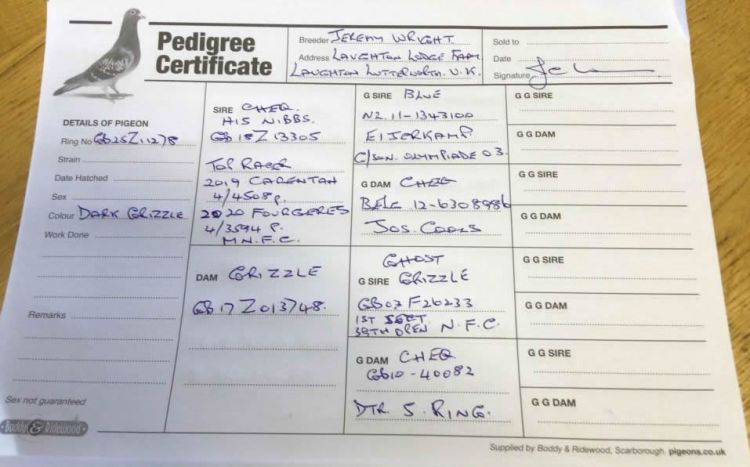 Pedigree Certificate
Breeder JEREMY WRIGHT.
Address LAUGHTON LODGE FARM
LAUGHTON LUTTERWORTH. U.K.
Sold to
Date
Signature
DETAILS OF PIGEON
Ring No GB25Z11278
Strain
Date Hatched
Sex
Colour DARK GRIZZLE
Work Done
Remarks
Sex not guaranteed
Boddy & Ridewood
SIRE CHEQ.
HIS NIBBS.
GB18Z13305
TOP RACER
2019 CARENTAN
4/4508 p.
2020 FOUGERES
4/3594 P.
M.N.F.C.
DAM GRIZZLE
GB17Z013748.
G SIRE BLUE
NL 11-1343100
EIJERKAMP
G/SON. OLYMPIADE 03.
G DAM CHEQ
BELG 12-6308986
JOS. COOLS
GHOST
G SIRE GRIZZLE
GB07F26233
1ST SECT
39TH OPEN N.F.C.
G DAM CHEQ
GB10-40082
DTR. S. RING.
G G SIRE
G G DAM
G G SIRE
G G DAM
G G SIRE
G G DAM
G G SIRE
G G DAM
Supplied by Boddy & Ridewood, Scarborough. pigeons.co.uk